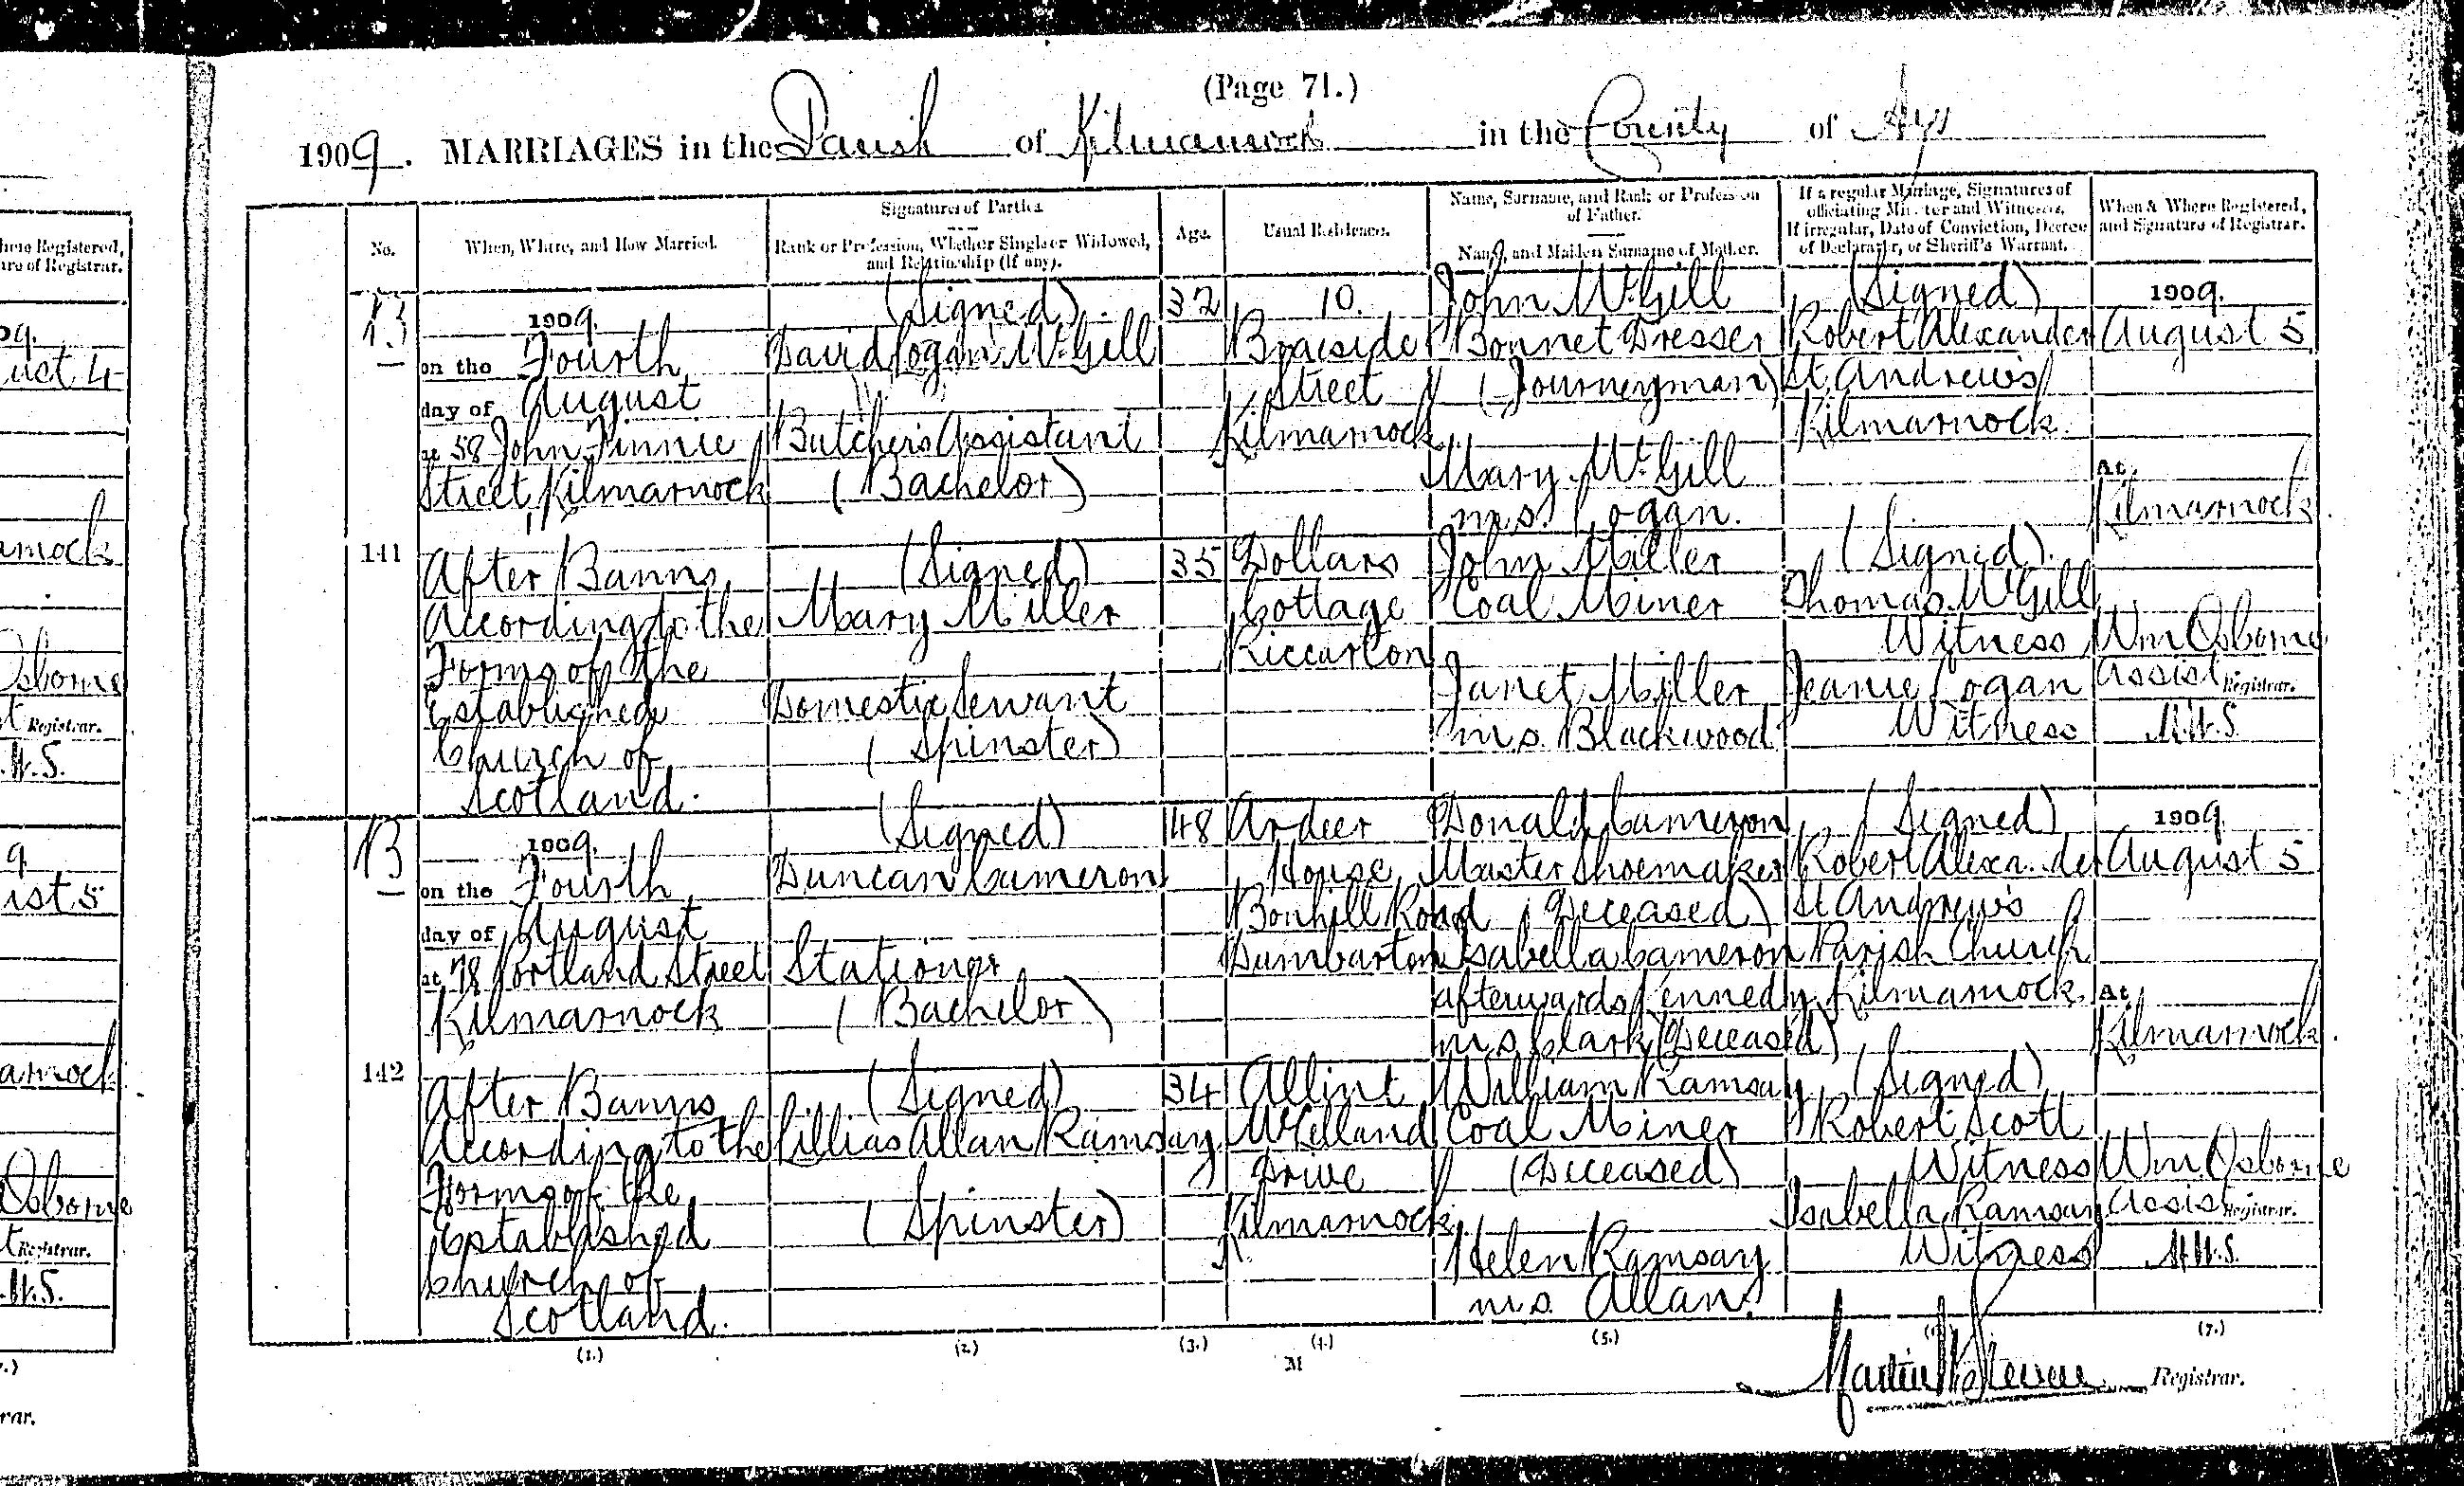 (Page 71.)
1909. MARRIAGES in the Parish of Kilmarnock in the County of Ayr
No.
When, Where, and How Married.
Signatures of Parties.
Rank or Profession, Whether Single or Widowed,
and Relationship (if any).
Age.
Usual Residence.
Name, Surname, and Rank or Profession
of Father.
Name, and Maiden Surname of Mother.
If a regular Marriage, Signatures of
officiating Minister and Witnesses.
If irregular, Date of Conviction, Decree
of Declarator, or Sheriff's Warrant.
When & Where Registered,
and Signature of Registrar.
B
141
1909.
on the Fourth
day of August
at 58 John Finnie
Street, Kilmarnock
After Banns
According to the
Forms of the
Established
Church of
Scotland.
(Signed)
David Logan McGill
Butcher's Assistant
(Bachelor)
(Signed)
Mary Miller
Domestic Servant
(Spinster)
32
35
10.
Braeside
Street
Kilmarnock
Dollars
Cottage
Riccarton
John McGill
Bonnet Dresser
(Journeyman)
Mary McGill
m.s. Logan.
John Miller
Coal Miner
Janet Miller
m.s. Blackwood
(Signed)
Robert Alexander
St. Andrew's
Kilmarnock.
(Signed).
Thomas McGill
Witness
Jeanie Logan
Witness
1909.
August 5
At
Kilmarnock.
Wm Osborne
Assist Registrar.
M.W.S.
B
142
1909.
on the Fourth
day of August
at 78 Portland Street
Kilmarnock
After Banns
According to the
Forms of the
Established
Church of
Scotland.
(Signed)
Duncan Cameron
Stationer
(Bachelor)
(Signed)
Lillias Allan Ramsay
(Spinster)
48
34
Ardeer
House
Bonhill Road
Dumbarton
McLelland
Drive
Kilmarnock
Donald Cameron
Master Shoemaker
(Deceased)
Isabella Cameron
afterwards Kennedy
m.s. Clark (Deceased)
William Ramsay
Coal Miner
(Deceased)
Helen Ramsay
m.s. Allan.
(Signed)
Robert Alexander
St Andrew's
Parish Church
Kilmarnock
(Signed)
Robert Scott
Witness
Isabella Ramsay
Witness
1909.
August 5
At
Kilmarnock.
Wm Osborne
Assist Registrar.
M.W.S.
(1.)
(2.)
(3.)
(4.)
(5.)
(6.)
(7.)
M
Martin W Steven Registrar.